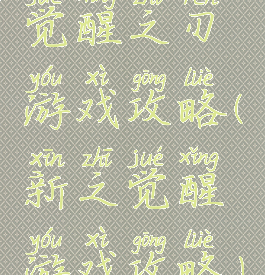 觉醒之刃
yóu xì gōng lüè
游戏攻略(
xīn zhī jué xǐng
新之觉醒
yóu xì gōng lüè
游戏攻略)